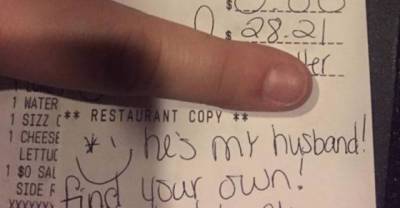 $0.00
$ 28.21
tter
1 WATER
1 SIZZ C** RESTAURANT COPY **
1 CHEESE
LETTUC
he's my husband!
1 $0 SAL
SIDE F
find your own!